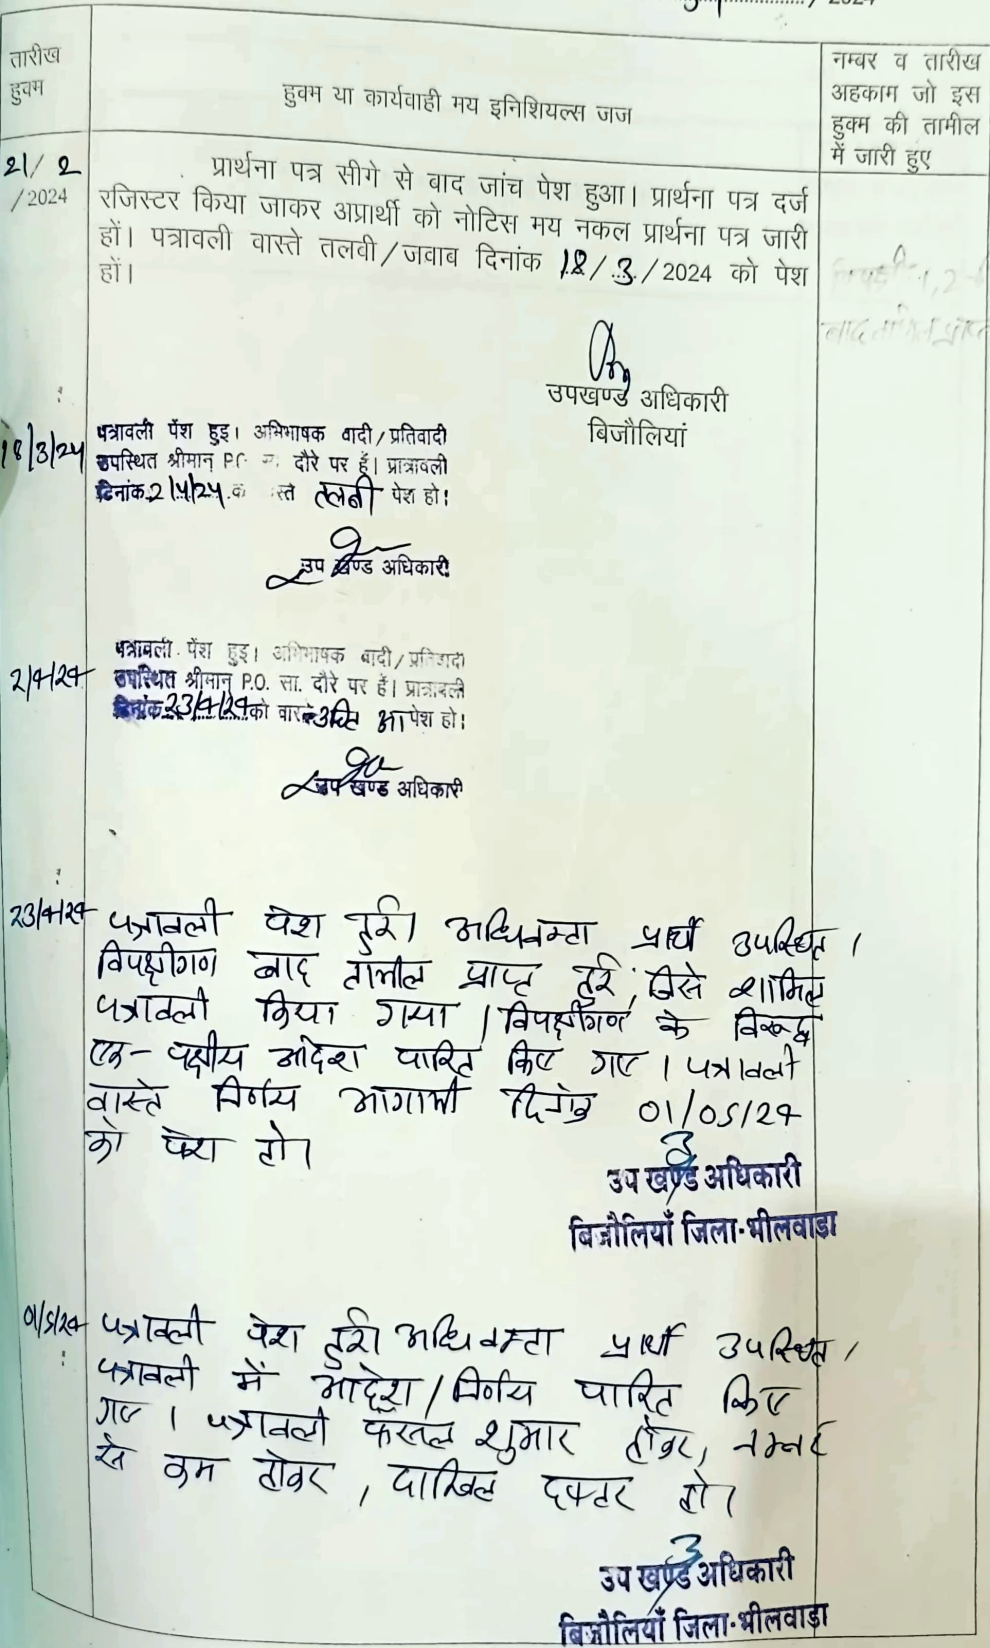 / 2024
तारीख
हुक्म
हुक्म या कार्यवाही मय इनिशियल्स जज
नम्बर व तारीख
अहकाम जो इस
हुक्म की तामील
में जारी हुए
21/2
/2024
प्रार्थना पत्र सीगे से बाद जांच पेश हुआ। प्रार्थना पत्र दर्ज
रजिस्टर किया जाकर अप्रार्थी को नोटिस मय नकल प्रार्थना पत्र जारी
हों। पत्रावली वास्ते तलवी/जवाब दिनांक 18/3/2024 को पेश
हों।
1,2
बाद तामिल प्राप्त
उपखण्ड अधिकारी
बिजौलियां
18/3/24
पत्रावली पेंश हुइ। अभिभाषक वादी/प्रतिवादी
उपस्थित श्रीमान् P.O. दौरे पर हैं। प्रात्रावली
दिनांक 2/4/24 स्ते तलबी पेश हो!
उप खण्ड अधिकारी
2/4/24
पत्रावली पेंश हुइ। अभिभाषक वादी/प्रतिवादी
उपस्थित श्रीमान् P.O. सा. दौरे पर हैं। प्रात्रावली
दिनांक 23/4/24 को वास्ते पेश हो!
उप खण्ड अधिकारी
23/4/24
पत्रावली पेश हुई। अधिवक्ता प्रार्थी उपस्थित।
विपक्षीगण बाद तामील प्राप्त हुई, जिसे शामिल
पत्रावली किया गया। विपक्षीगण के विरूद्ध
एक-पक्षीय आदेश पारित किए गए। पत्रावली
वास्ते निर्णय आगामी दिनांक 01/05/24
को पेश हो।
उप खण्ड अधिकारी
बिजौलियाँ जिला-भीलवाडा
01/5/24
पत्रावली पेश हुई। अधिवक्ता प्रार्थी उपस्थित।
पत्रावली में आदेश/निर्णय पारित किए
गए। पत्रावली फैसल शुमार होकर, नम्बर
से कम होकर, दाखिल दफ्तर हो।
उप खण्ड अधिकारी
बिजौलियाँ जिला-भीलवाडा